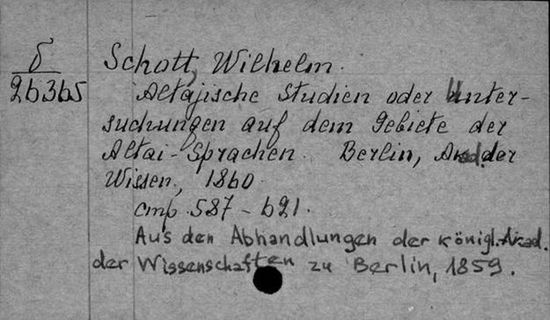 б
26365
Schott, Wilhelm.
Altajische Studien oder Unter-
suchungen auf dem Gebiete der
Altai-Sprachen. Berlin, Akad. der
Wissen., 1860.
cmp. 587-621.
Aus den Abhandlungen der königl. Akad.
der Wissenschaften zu Berlin, 1859.